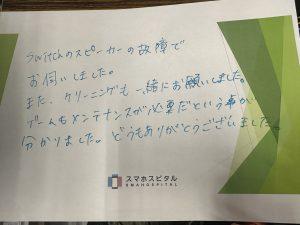 Switchのスピーカーの故障で
お伺いしました。
また、クリーニングも一緒にお願いしました。
ゲームもメンテナンスが必要だという事が
分かりました。どうもありがとうございました。
スマホスピタル
SMAHOSPITAL